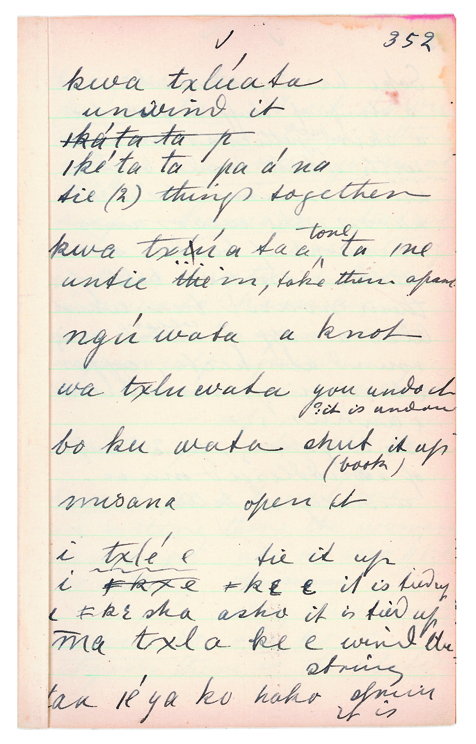 352
kwa txlúata
unwind it
ikáta ta p
ikéta ta pa á na
tie (2) things together
kwa txlú a taa tone, ta ine
untie them, take them apart
ngú wata a knot
wa txluwata you undo it
it is undone
bo ku wata shut it up
(book)
musana open it
i txlé e tie it up
i ǂkxe ǂkɛ ɛ it is tied up
ǂkɛ sha asho it is tied up
ma txla ke e wind the
string
taa ié ya ko hoho
it is